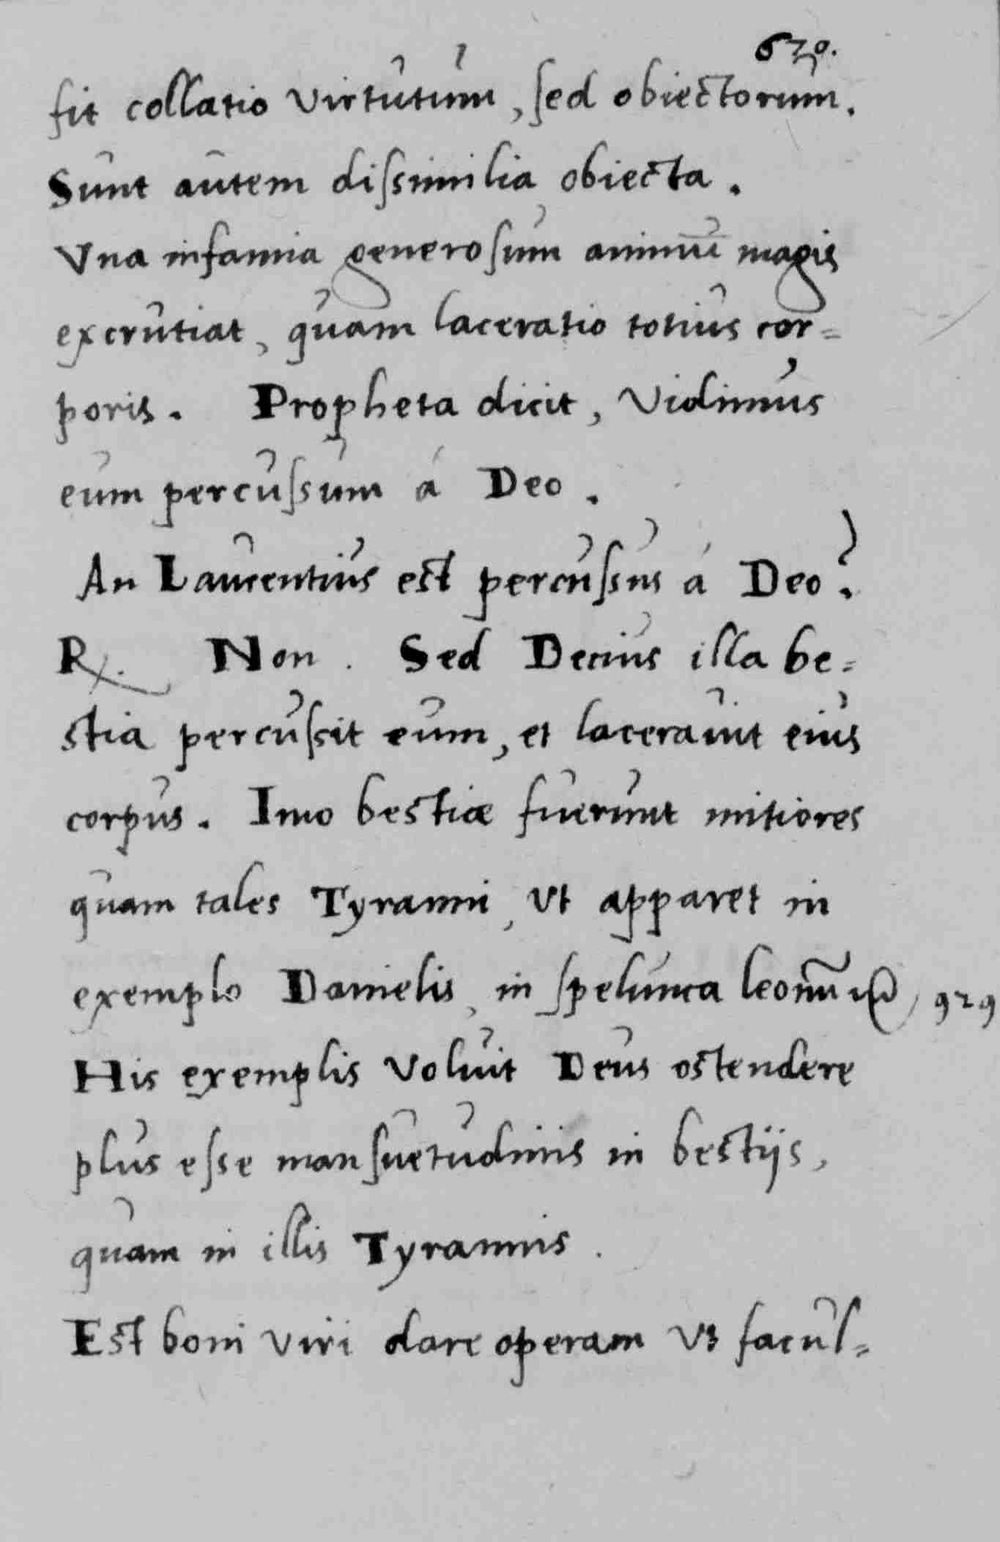 620.
fit collatio virtutum, sed obiectorum.
Sunt autem dissimilia obiecta.
Una infamia generosum animū magis
excrutiat, quam laceratio totius cor=
poris. Propheta dicit, Vidimus
eum percussum á Deo.
An Laurentius est percussus á Deo?
R. Non. Sed Decius illa be=
stia percussit eum, et laceravit eius
corpus. Imo bestiæ fuerunt mitiores
quam tales Tyranni, ut apparet in
exemplo Danielis, in spelunca leonū
His exemplis voluit Deus ostendere
plus esse mansuetudinis in bestijs,
quam in illis Tyrannis.
Est boni viri dare operam ut facul=